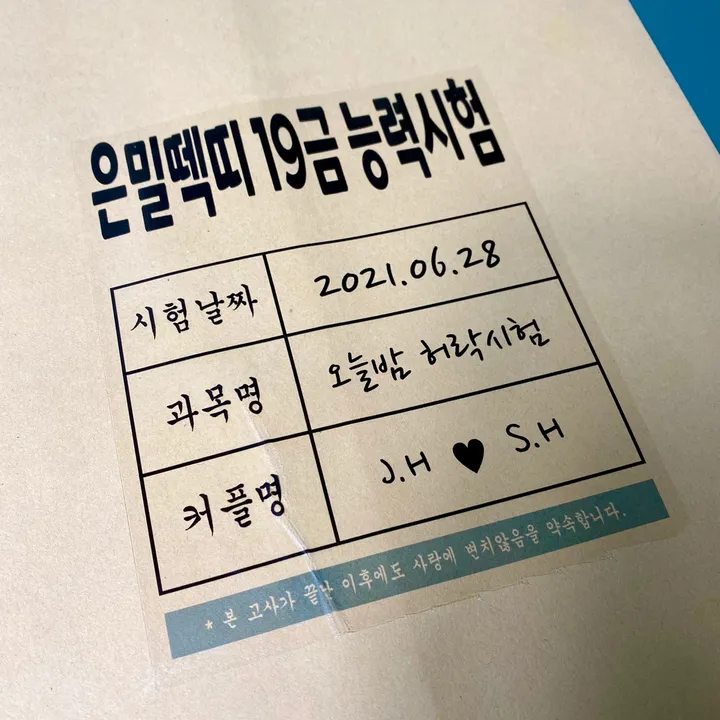 은밀떽띠 19금 능력시험
시험날짜 2021.06.28
과목명 오늘밤 허락시험
커플명 J.H ♥ S.H
* 본 고사가 끝난 이후에도 사랑에 변치않음을 약속합니다.